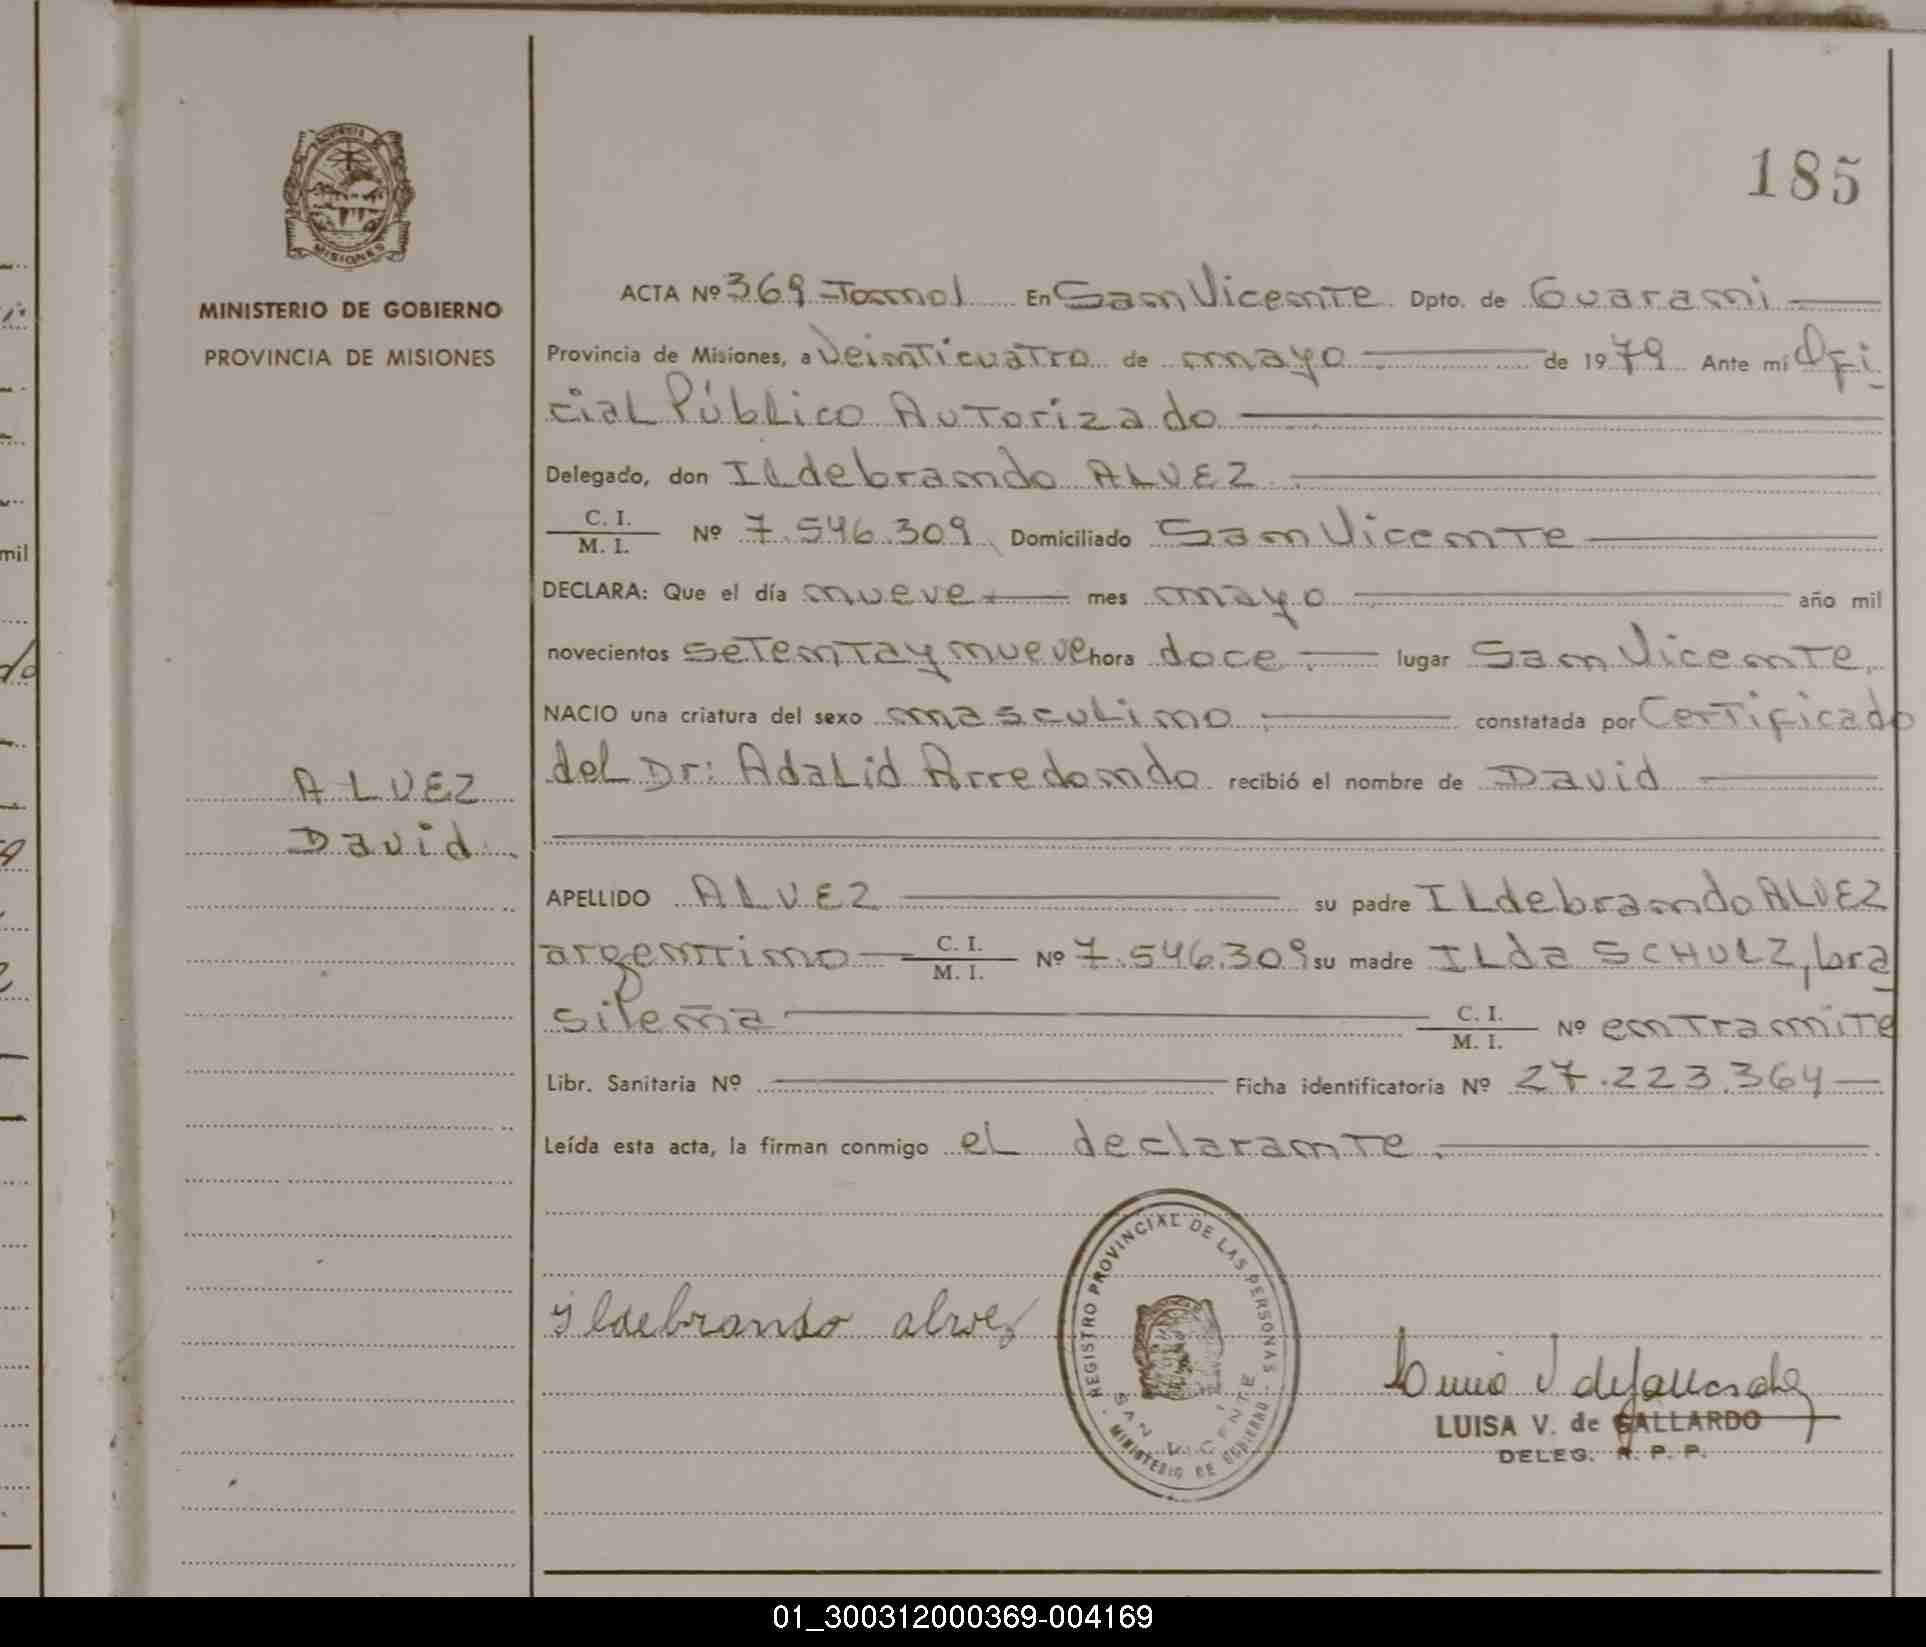 185
MINISTERIO DE GOBIERNO
PROVINCIA DE MISIONES
ALVEZ
David
ACTA Nº 369 - Tomo I En San Vicente Dpto. de Guarani
Provincia de Misiones, a Veinticuatro de mayo de 1979 Ante mí Ofi
cial Público Autorizado
Delegado, don Ildebrando ALVEZ
C. I.
M. I. Nº 7.546.309 Domiciliado San Vicente
DECLARA: Que el día nueve mes mayo año mil
novecientos setenta y nueve hora doce. lugar San Vicente,
NACIO una criatura del sexo masculino constatada por Certificado
del Dr: Adalid Arredondo recibió el nombre de David
APELLIDO ALVEZ su padre Ildebrando ALVEZ
argentino C. I. M. I. Nº 7.546.309 su madre Ilda SCHULZ, bra
sileña C. I. M. I. Nº en tramite
Libr. Sanitaria Nº Ficha identificatoria Nº 27.223.364
Leída esta acta, la firman conmigo el declarante.
Ildebrando alvez
REGISTRO PROVINCIAL DE LAS PERSONAS
SAN VICENTE
MINISTERIO DE GOBIERNO
LUISA V. de GALLARDO
DELEG. R. P. P.
01_300312000369-004169